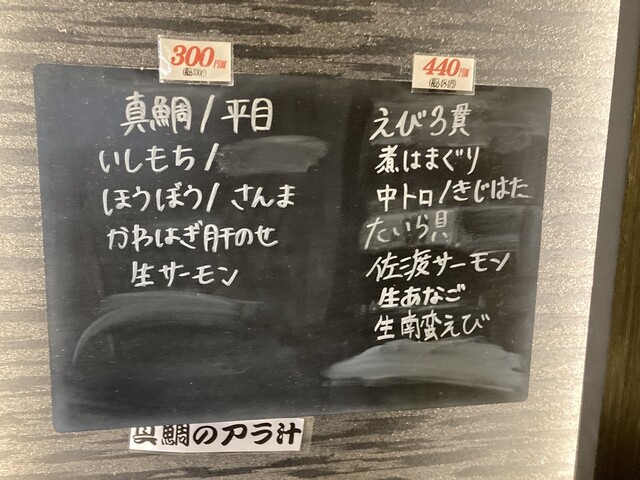 300円皿
真鯛/平目
いしもち/
ほうぼう/さんま
かわはぎ肝のせ
生サーモン
440円皿
えび3貫
煮はまぐり
中トロ/きじはた
たいら貝
佐渡サーモン
生あなご
生南蛮えび
真鯛のアラ汁